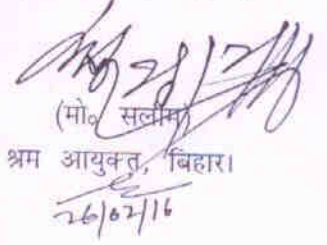 (मो० सलीम)
श्रम आयुक्त, बिहार।
26/02/16